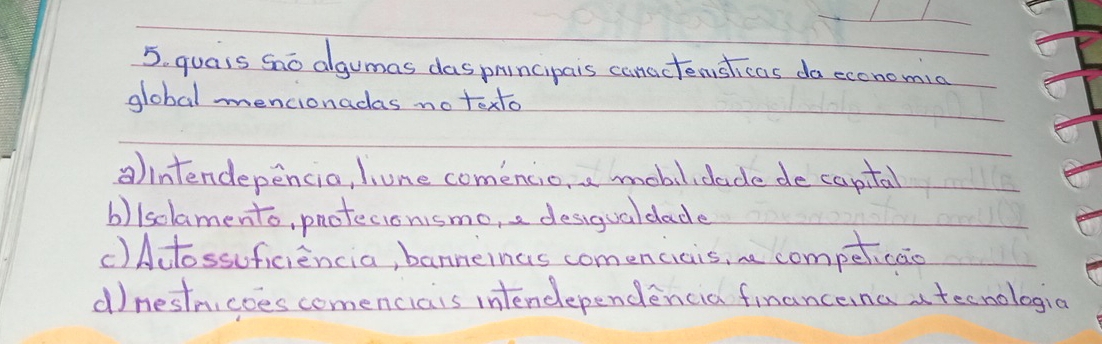 5. quais são algumas das principais características da economia
global mencionadas no texto
a) Intendepência, livre comércio, e mobilidade de capital
b) Isolamento, protecionismo, e desigualdade
c) Autossuficiência, barreiras comerciais, e competição
d) restrições comerciais interdependência financeira e tecnologia